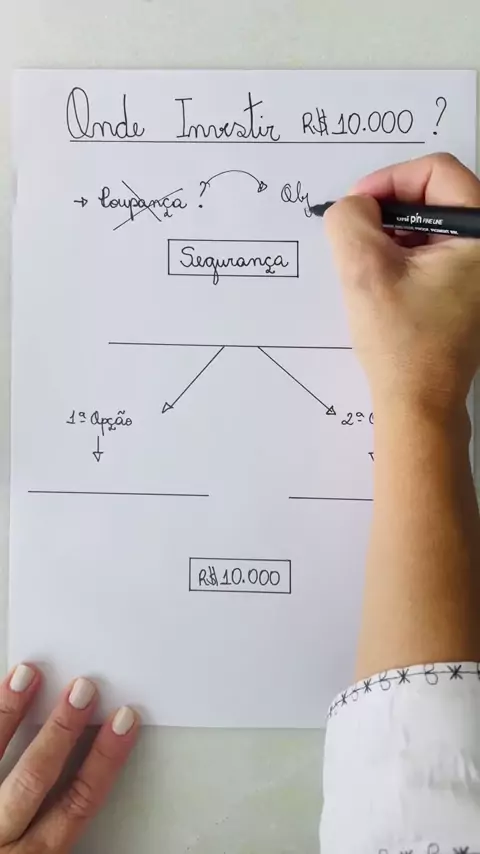 Onde Investir R$10.000?
→ Poupança? Obj
Segurança
1ª Opção 2ª O
R$10.000
uni pin FINE LINE